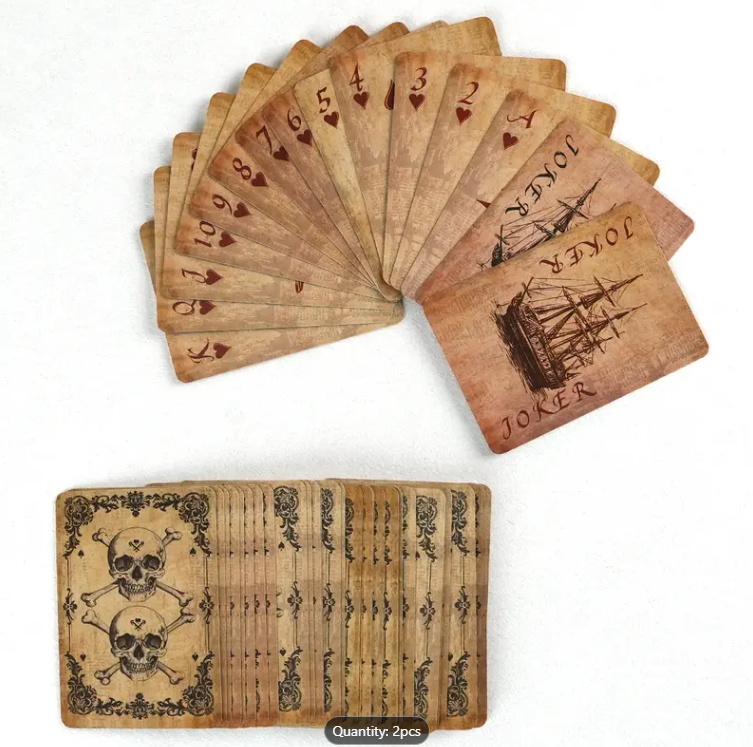 K
Q
J
10
9
8
7
6
5
4
3
2
A
JOKER
JOKER
JOKER
Quantity: 2pcs